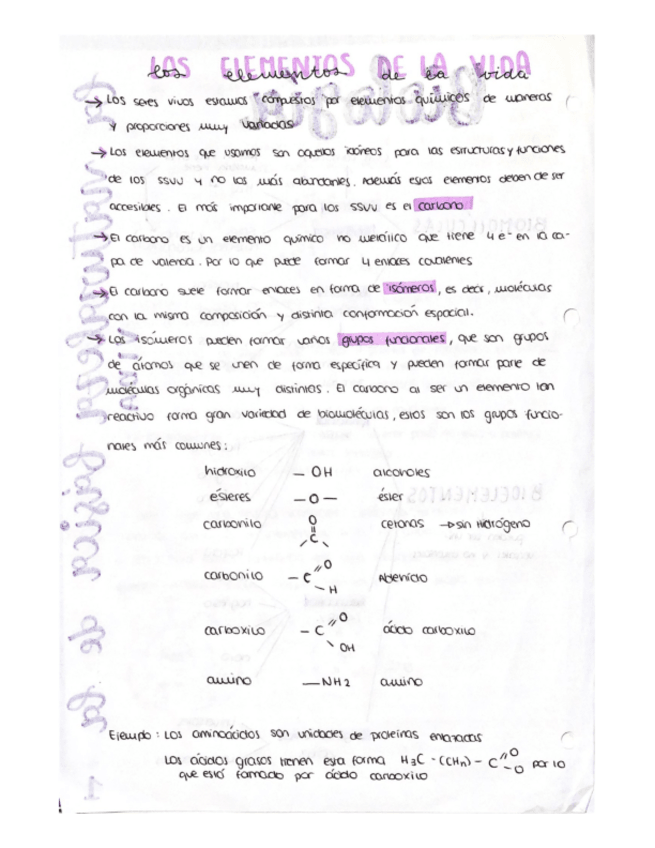 LOS ELEMENTOS DE LA VIDA
los elementos de la vida
→ Los seres vivos estamos compuestos por elementos químicos de maneras
y proporciones muy variadas
→ Los elementos que usamos son aquellos idóneos para las estructuras y funciones
de los ssvv y no los más abundantes. Además estos elementos deben de ser
accesibles. El más importante para los ssvv es el carbono
→ El carbono es un elemento químico no metálico que tiene 4 e⁻ en la ca-
pa de valencia. Por lo que puede formar 4 enlaces covalentes
→ El carbono suele formar enlaces en forma de isómeros, es decir, moléculas
con la misma composición y distinta conformación espacial.
→ Los isómeros pueden formar varios grupos funcionales, que son grupos
de átomos que se unen de forma específica y pueden formar parte de
moléculas orgánicas muy distintas. El carbono al ser un elemento tan
reactivo forma gran variedad de biomoléculas, estos son los grupos funcio-
nales más comunes:
hidroxilo — OH alcoholes
ésteres — O — éster
carbonilo O=C cetonas → sin hidrógeno
carbonilo — C =O — H Aldehído
carboxilo — C =O OH ácido carboxilo
amino — NH2 amino
Ejemplo: Los aminoácidos son unidades de proteínas enlazadas
Los ácidos grasos tienen esta forma H3C - (CHn) - C =O -O por lo
que está formado por ácido carboxilo